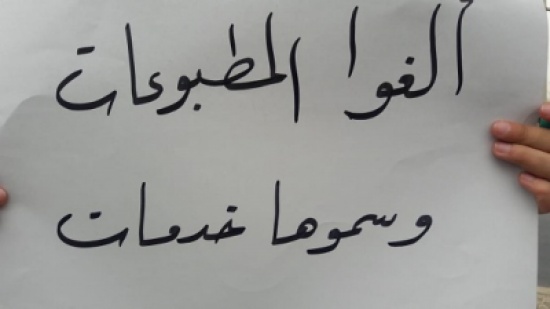 ألغوا المطبوعات
وسموها خدمات